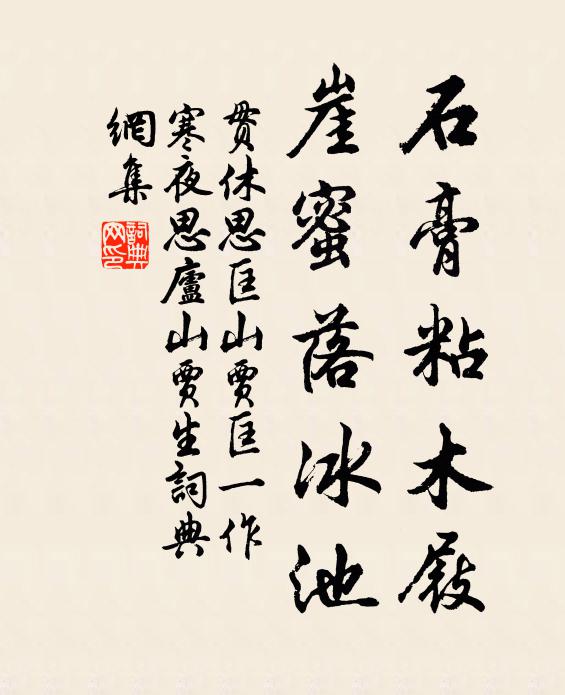 石膏粘木屐
崖蜜落冰池
贯休思匡山贾匡一作
寒夜思廬山贾生詞典
網集
詞典
网印